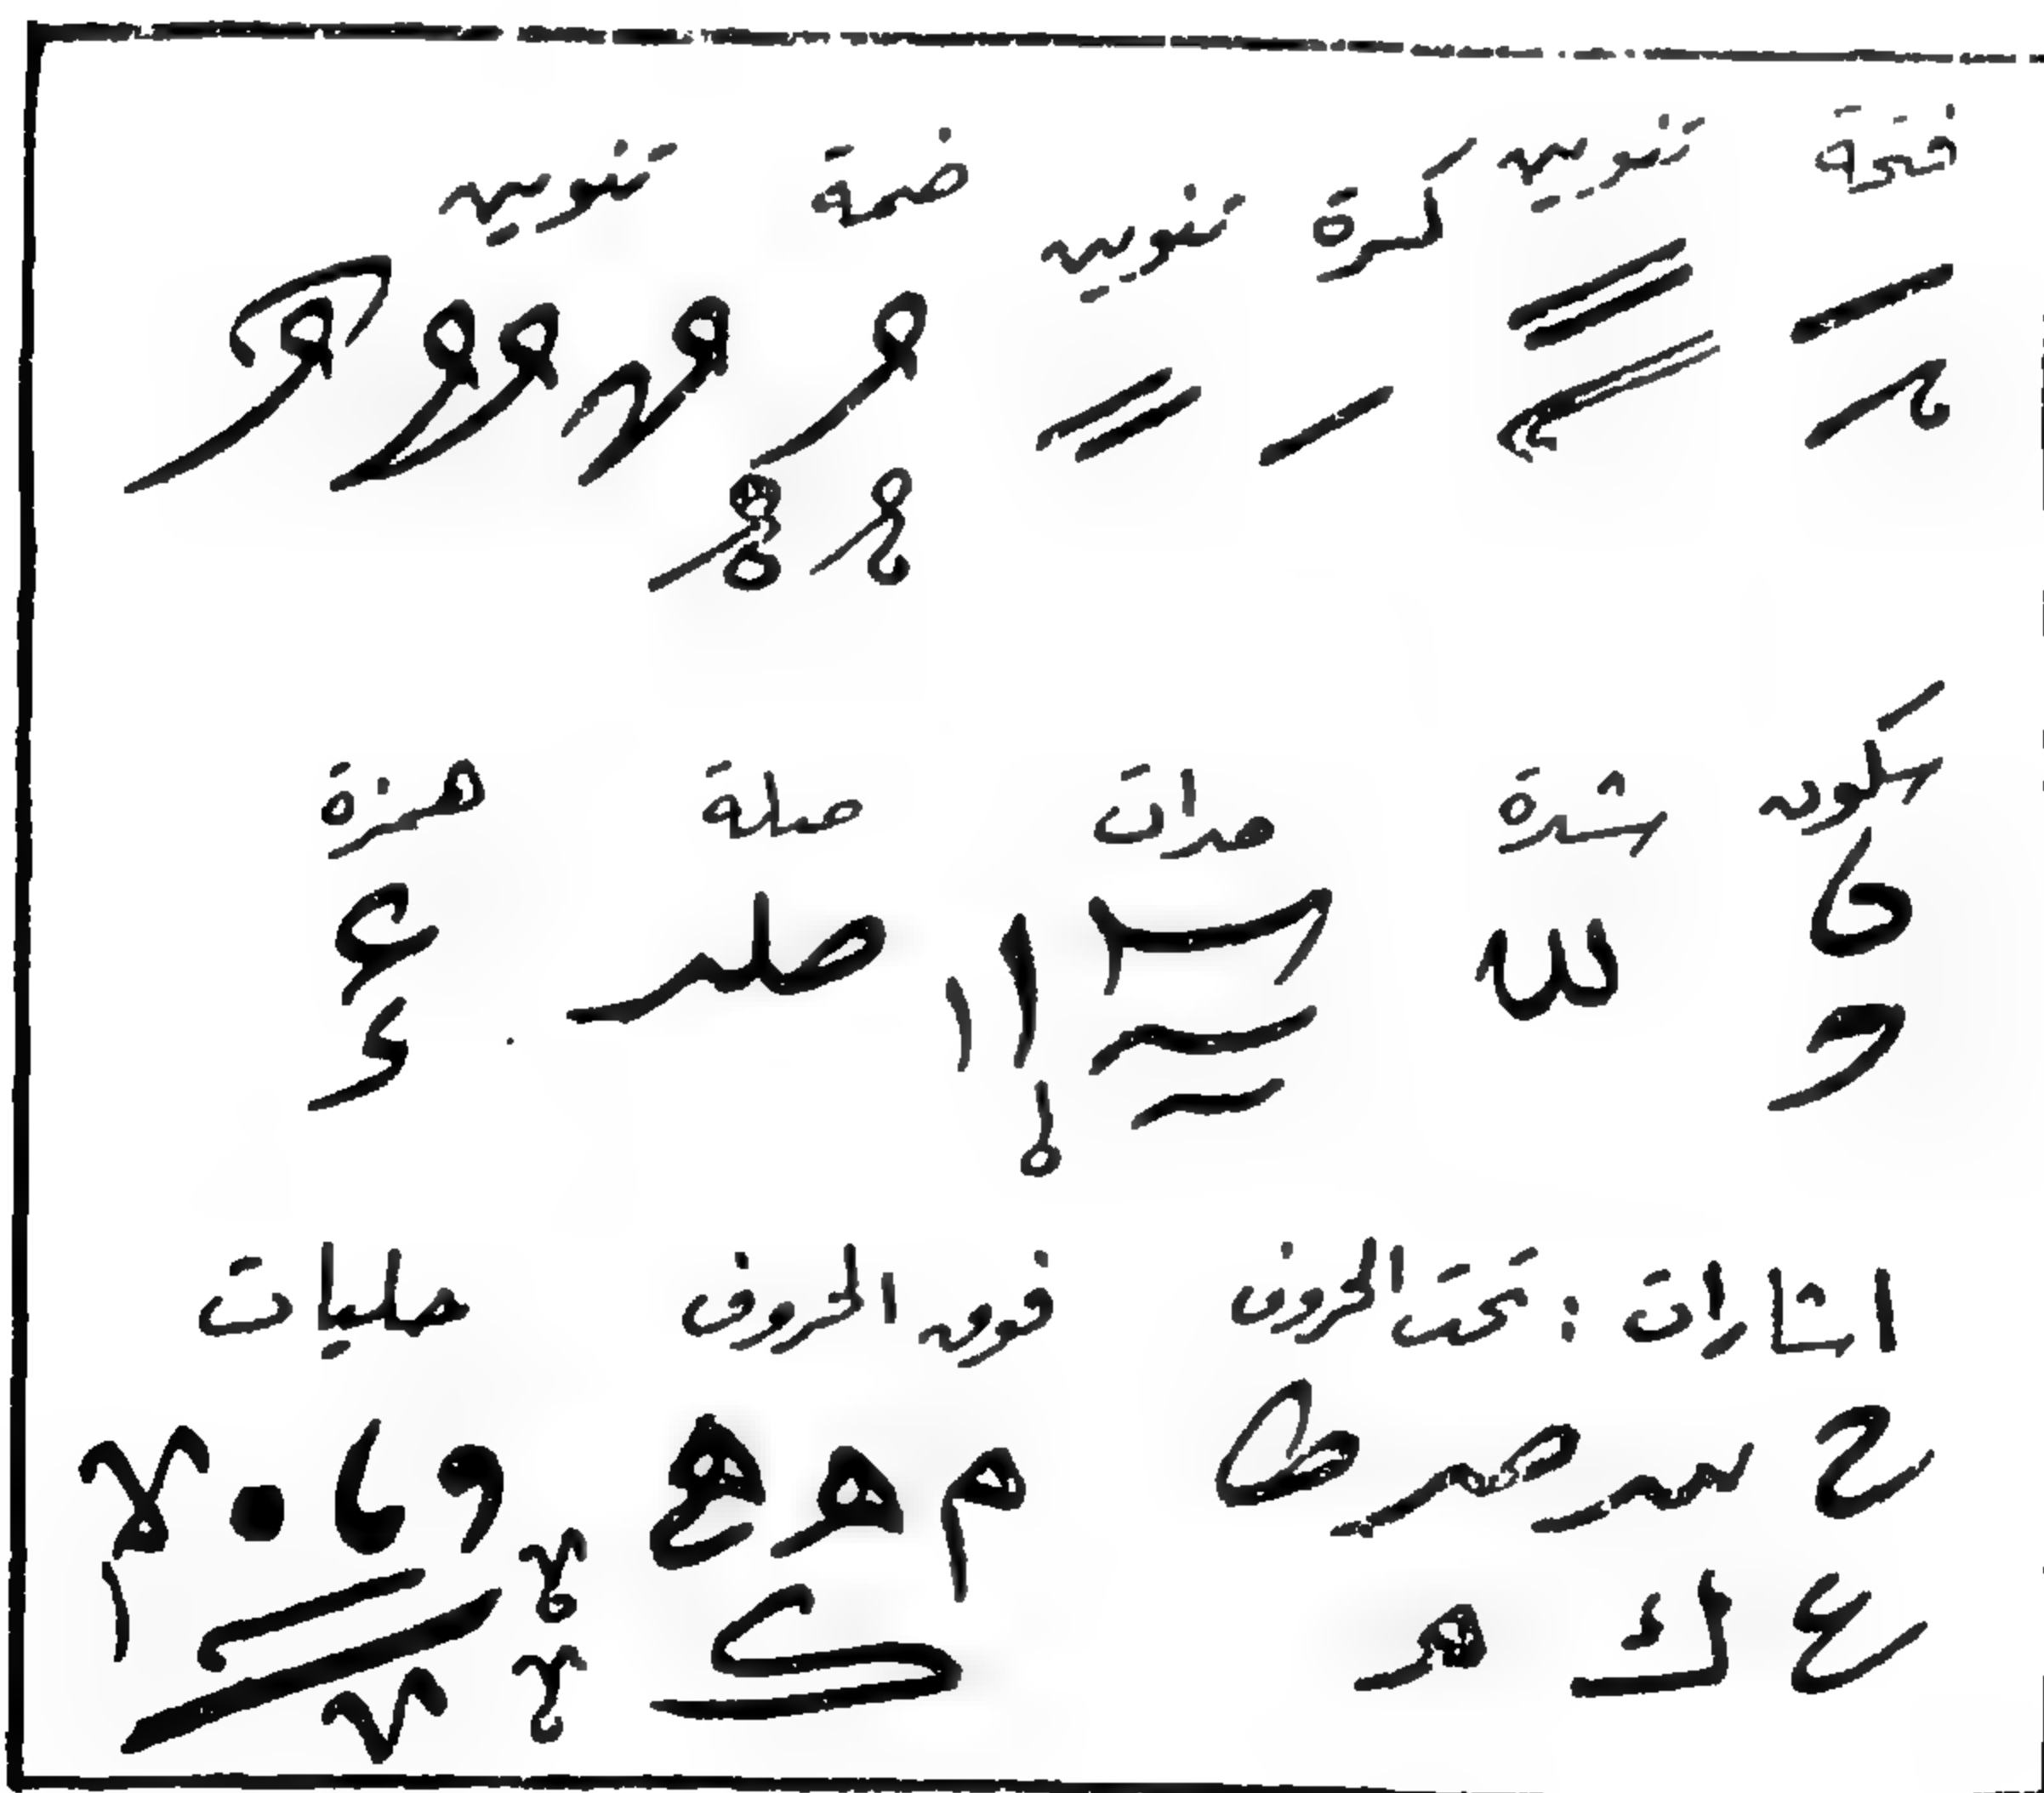 فتحة تنوين كسرة تنوين ضمة تنوين
سكون شدة مدات صلة همزة
صلـ
اشارات : تحت الحروف فوق الحروف حليات
ح سـ صـ ط م هـ
ع ك هـ